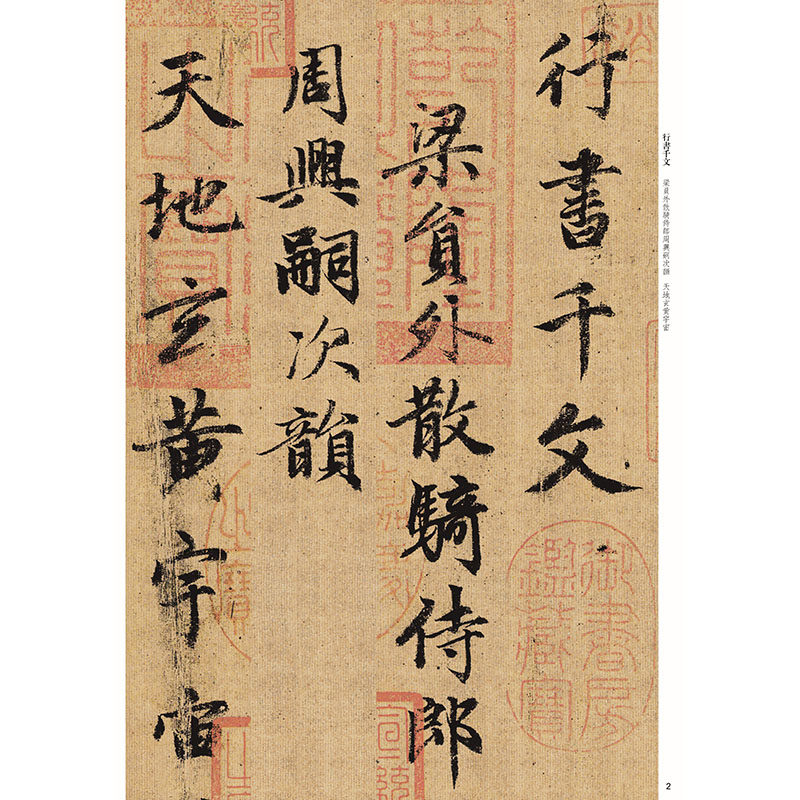 行書千文
梁員外散騎侍郎
周興嗣次韻
天地玄黃宇宙
御書房鑑藏寶
行書千文 梁員外散騎侍郎周興嗣次韻 天地玄黃宇宙
2